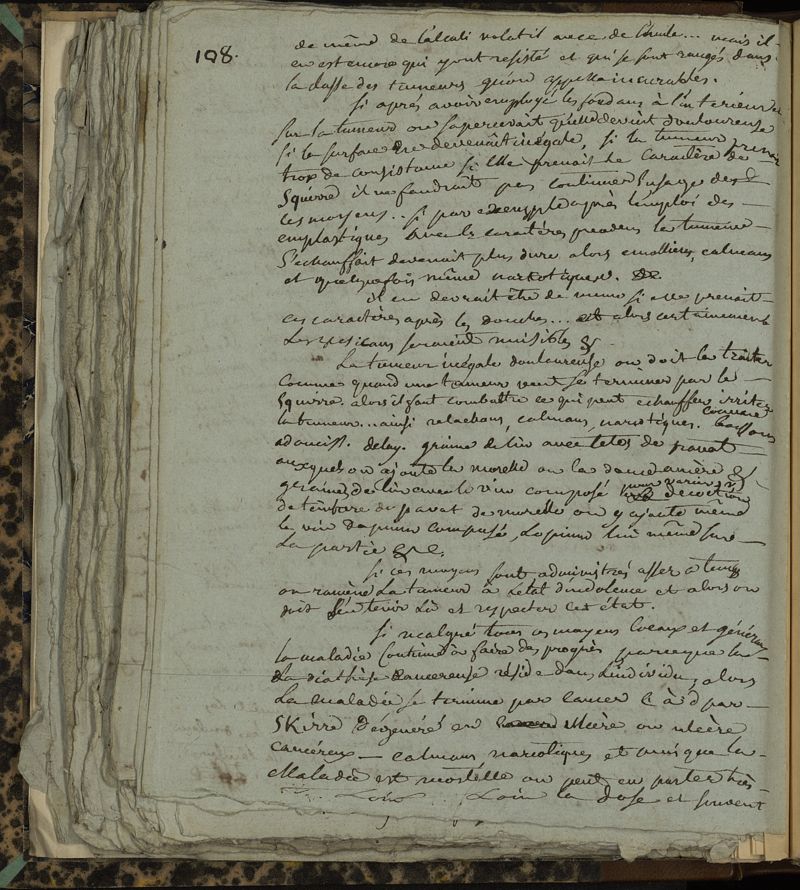 108.
de même de l'alcali volatil avec de l'huile... mais il
en est encore qui y ont resisté et qui se sont rangés dans
la classe des tumeurs qu'on appelle incurables.
Si après avoir employé les fondans à l'interieur et
sur la tumeur on s'apercevait qu'elle devint douloureuse
si la surface devenait inégale, si la tumeur prenait
trop de consistance si elle prenait le caractère de
squirre il ne faudrait pas continuer l'usage de
ces moyens.. si par exemple après l'emploi des
emplastiques avec le caractères la tumeur
s'echauffait devenait plus dure alors emolliens, calmans
et quelquefois même narcotiques. &c
il en devrait être de meme si elle prenait
ces caractères après les douches... alors certainement
les vesicans seraient nuisibles &.
La tumeur inégale douloureuse on doit la traiter
comme quand une tumeur veut se terminer par le
squirre. alors il faut combattre ce qui peut echauffer irriter
la tumeur... ainsi relachans, calmans, narcotiques. comme
boissons
adouciss. delay. graine de lin avec tetes de pavot
auxquels on ajoute la morelle ou la douce amère &
graines de lin avec le vin composé decoction
de teinture de pavot de morelle on y ajoute même
le vin d'opium composé, l'opium lui même sur
la partie &c.
Si ces moyens sont administrés assez a temps
on ramène la tumeur à l'etat d'indolence et alors on
doit s'en tenir là et respecter cet état.
Si malgré tous ces moyens locaux et généraux
la maladie continue à faire des progrès parceque la
la diathèse cancereuse réside dans l'individu, alors
la maladie se termine par cancer c à d par
skirre dégénéré en ulcère ou ulcère
cancéreux — calmans narcotiques et puis que la
maladie est mortelle on peut en porter très
loin la dose et souvent